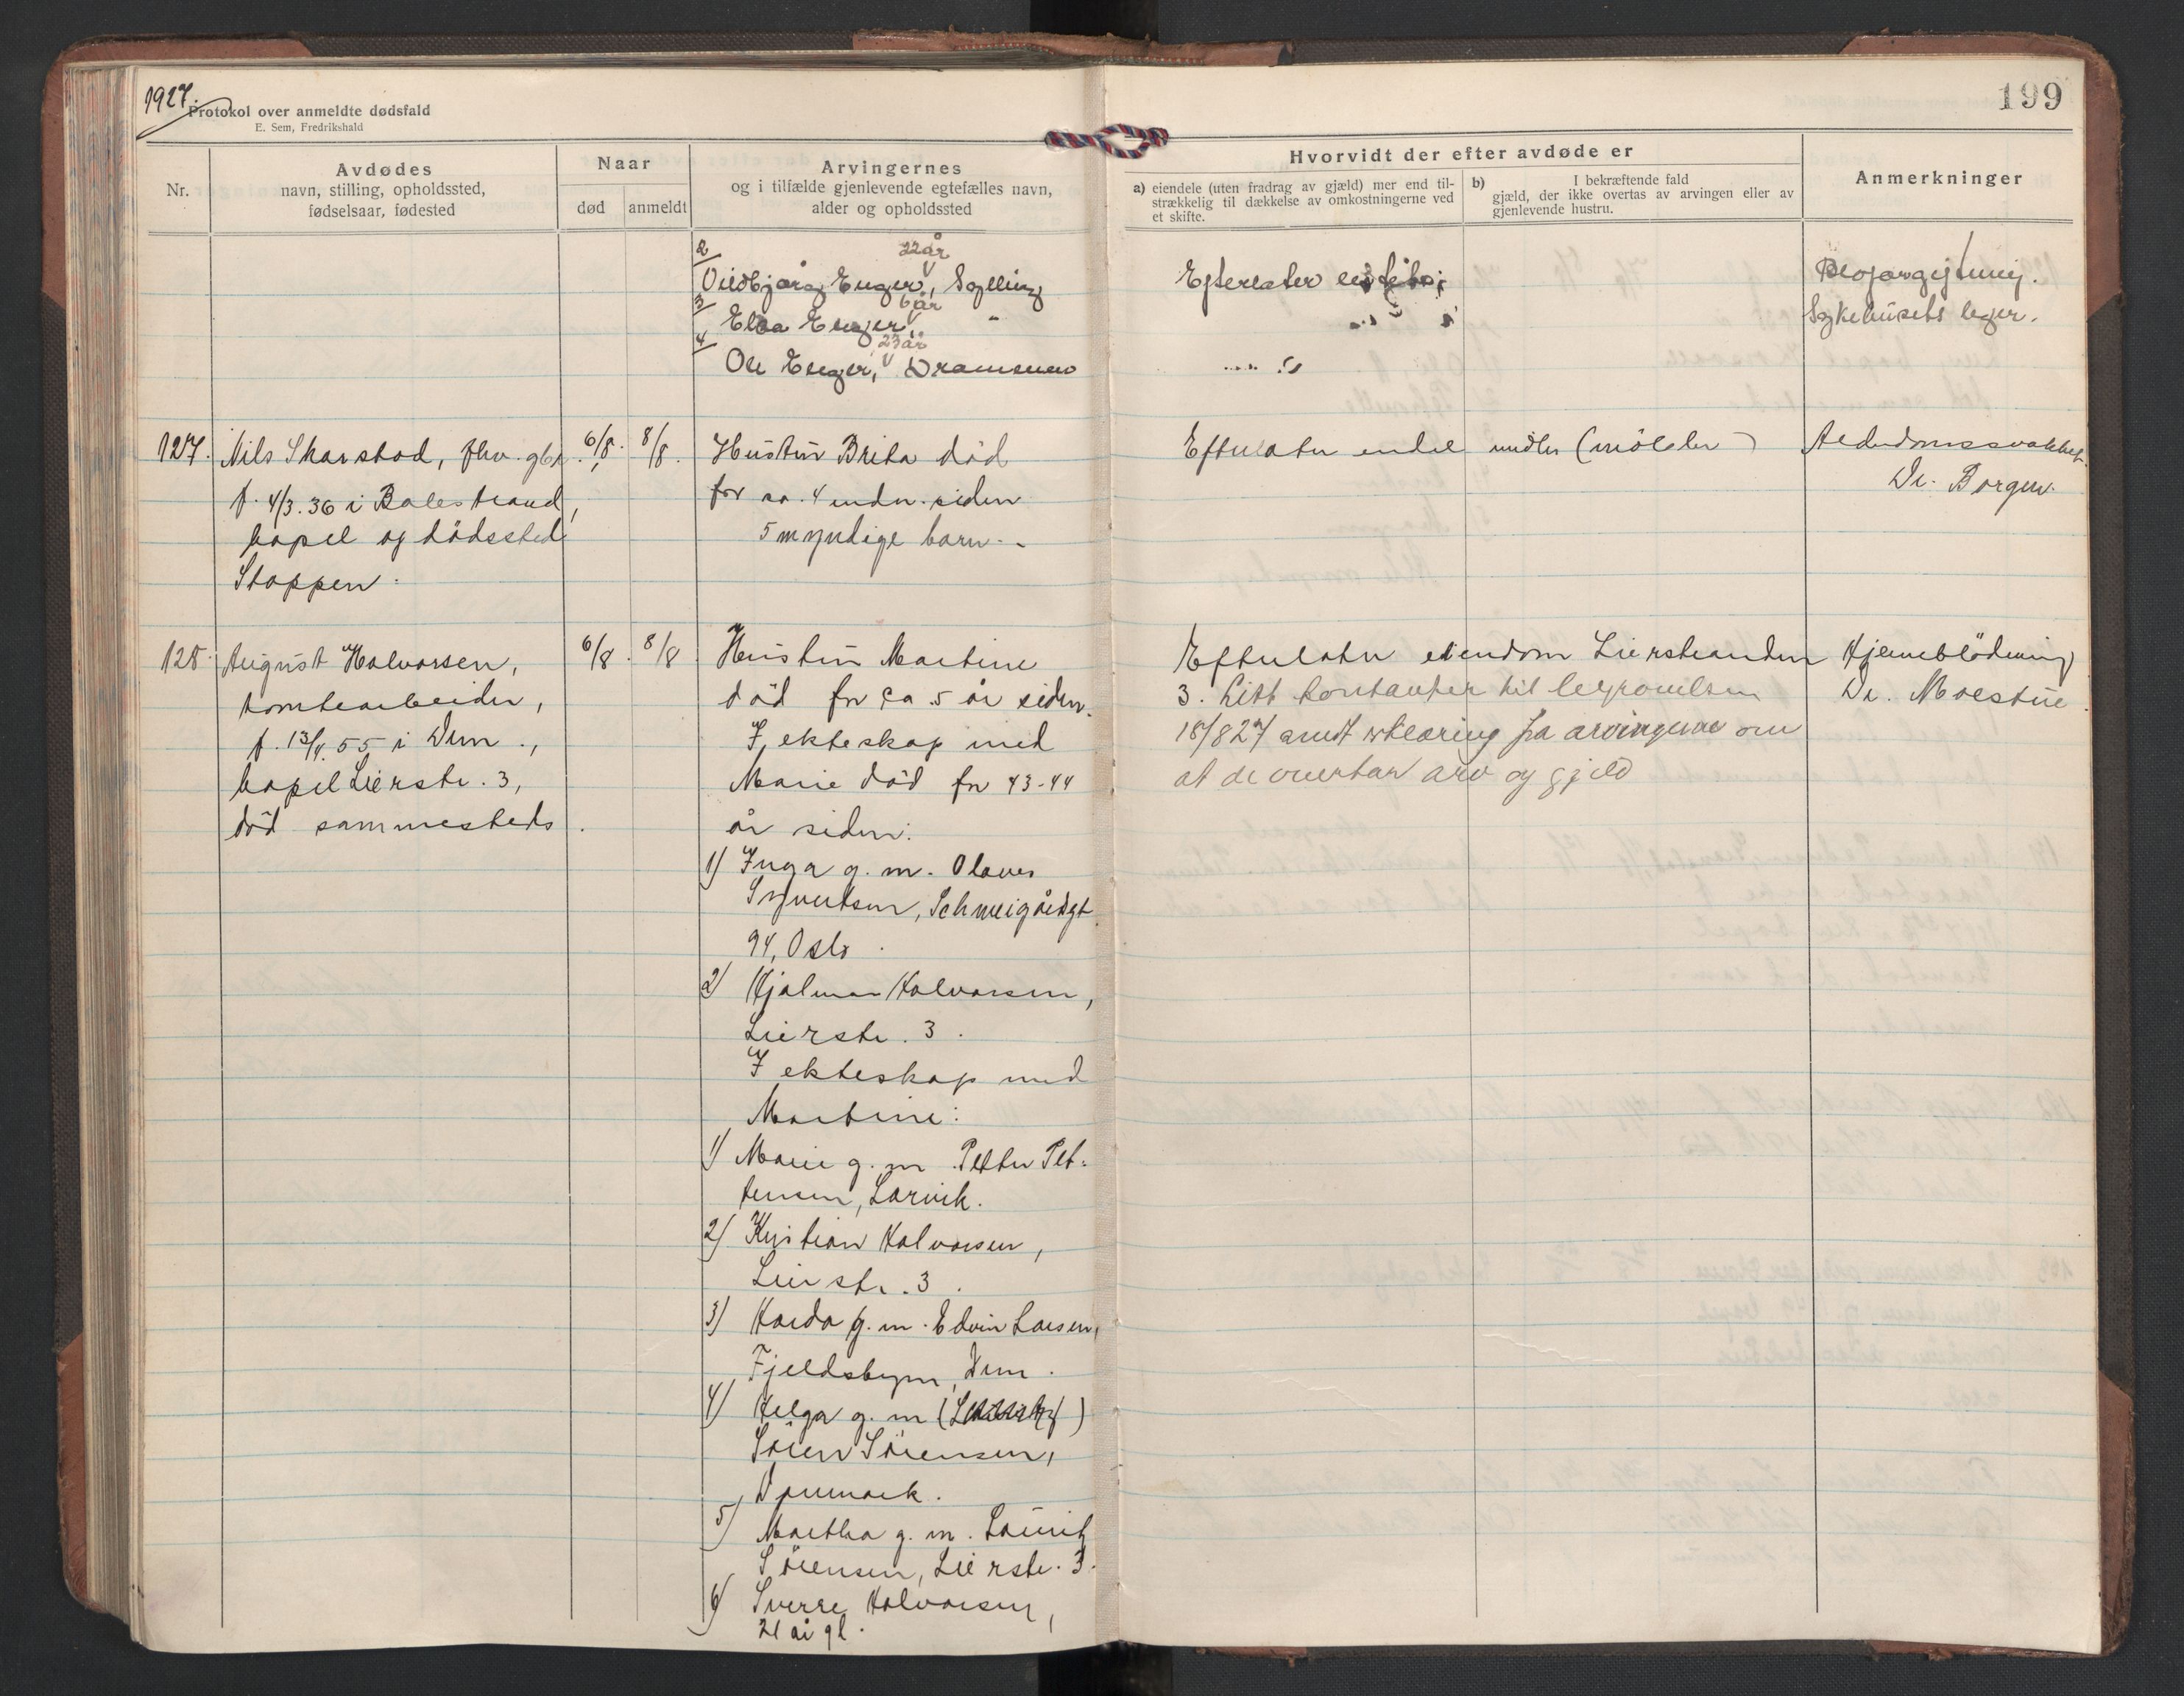 1927.
Protokol over anmeldte dødsfald
E. Sem, Fredrikshald
199
Nr.
Avdødes
navn, stilling, opholdssted,
fødselsaar, fødested
Naar
død
anmeldt
Arvingernes
og i tilfælde gjenlevende egtefælles navn,
alder og opholdssted
Hvorvidt der efter avdøde er
a) eiendele (uten fradrag av gjæld) mer end til-
strækkelig til dækkelse av omkostningerne ved
et skifte.
b) I bekræftende fald
gjæld, der ikke overtas av arvingen eller av
gjenlevende hustru.
Anmerkninger
2/ 22 år
Enger, Sylling
3/ 6 år
Elsa Enger, "
4/ 23 år
Ole Enger, Drammen
Efterlater
Sykehusets leger.
127.
Nils Skarstad, fhv. gbr.
f. 4/3.36 i Balestrand,
bopel og dödssted
Stoppen.
6/8.
8/8.
Hustru Brita död
for ca. 4 mdr. siden
5 myndige barn.
Efterlater endel midler (möbler)
Alderdomssvakhet.
Dr. Borgen.
128.
August Halvorsen,
tomtearbeider,
f. 13/4.55 i Drm.,
bopel Lierstr. 3,
död sammesteds.
6/8.
8/8
Hustru Martine
död for ca. 5 år siden.
I ekteskap med
Marie död for 43-44
år siden:
1) Inga g. m. Olaves
Syvertsen, Schweigårdgt.
94, Oslo.
2) Hjalmar Halvorsen,
Lierstr. 3.
I ekteskap med
Martine:
1) Marie g. m. Petter Pet-
tersen, Larvik.
2) Kristian Halvorsen,
Lierstr. 3.
3) Harda g. m. Edvin Larsen,
Fjeldsbyen, Drm.
4) Helga g. m. ( )
Sören Sörensen,
Danmark.
5) Martha g. m. Laurit
Sörensen, Lierstr. 3.
6) Sverre Halvorsen,
21 år gl.
Efterlater eiendom Lierstranden
3. Litt kontanter til begravelsen
18/8 27 erklæring fra arvingerne om
at de overtar arv og gjeld
Hjerneblödning
Dr. Moestue.